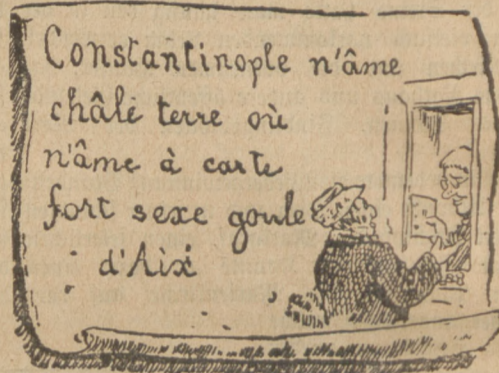 Constantinople n'âme
châle terre où
n'âme à carte
fort sexe goule
d'Aix